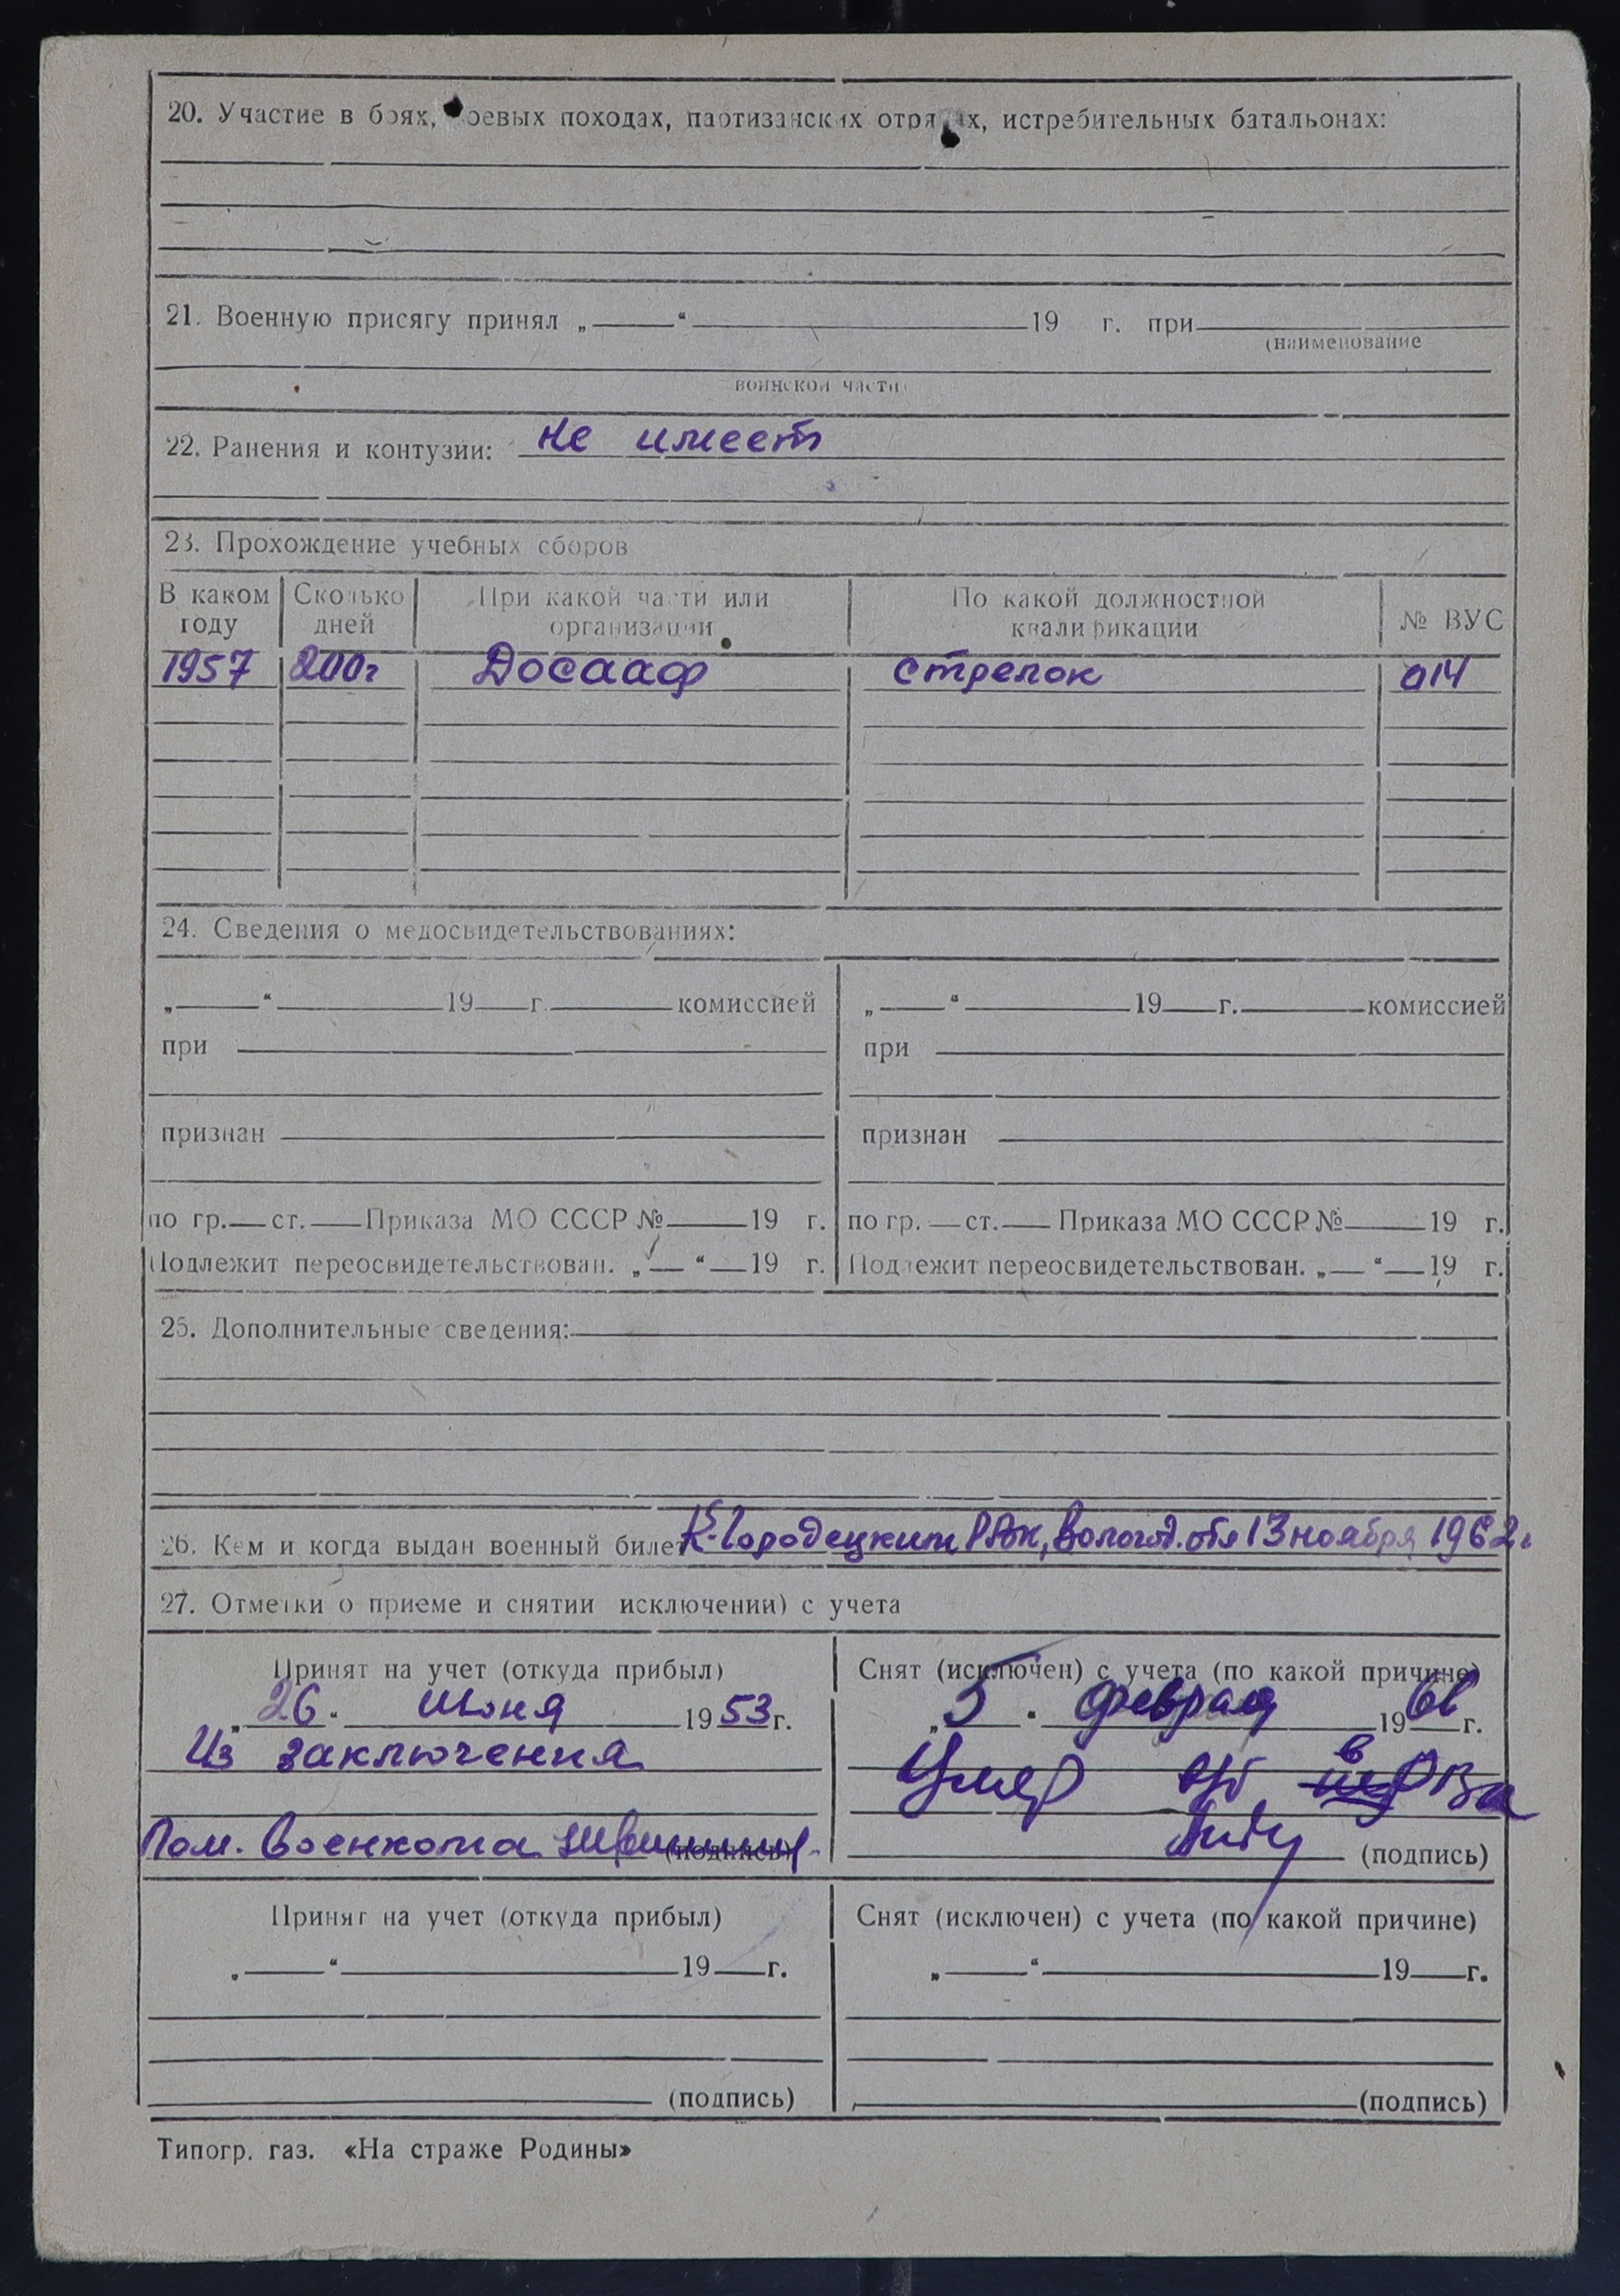 20. Участие в боях, боевых походах, партизанских отрядах, истребительных батальонах:
21. Военную присягу принял „ “ 19 г. при
(наименование
воинской части)
22. Ранения и контузии: не имеет
23. Прохождение учебных сборов
В каком году Сколько дней При какой части или организации По какой должностной квалификации № ВУС
1957 200г Досааф стрелок 014
24. Сведения о медосвидетельствованиях:
„ “ 19 г. комиссией „ “ 19 г. комиссией
при при
признан признан
по гр. ст. Приказа МО СССР № 19 г. по гр. ст. Приказа МО СССР № 19 г.
Подлежит переосвидетельствован. „ “ 19 г. Подлежит переосвидетельствован. „ “ 19 г.
25. Дополнительные сведения:
26. Кем и когда выдан военный билет К-Городецким РВК, Вологод. обл 13 ноября 1962г
27. Отметки о приеме и снятии исключении) с учета
Принят на учет (откуда прибыл) Снят (исключен) с учета (по какой причине)
„ 26 “ июня 1953 г. „ 5 “ февраля 19 г.
Из заключения Умер
Пом. военкома (подпись) (подпись)
Принят на учет (откуда прибыл) Снят (исключен) с учета (по какой причине)
„ “ 19 г. „ “ 19 г.
(подпись) (подпись)
Типогр. газ. «На страже Родины»